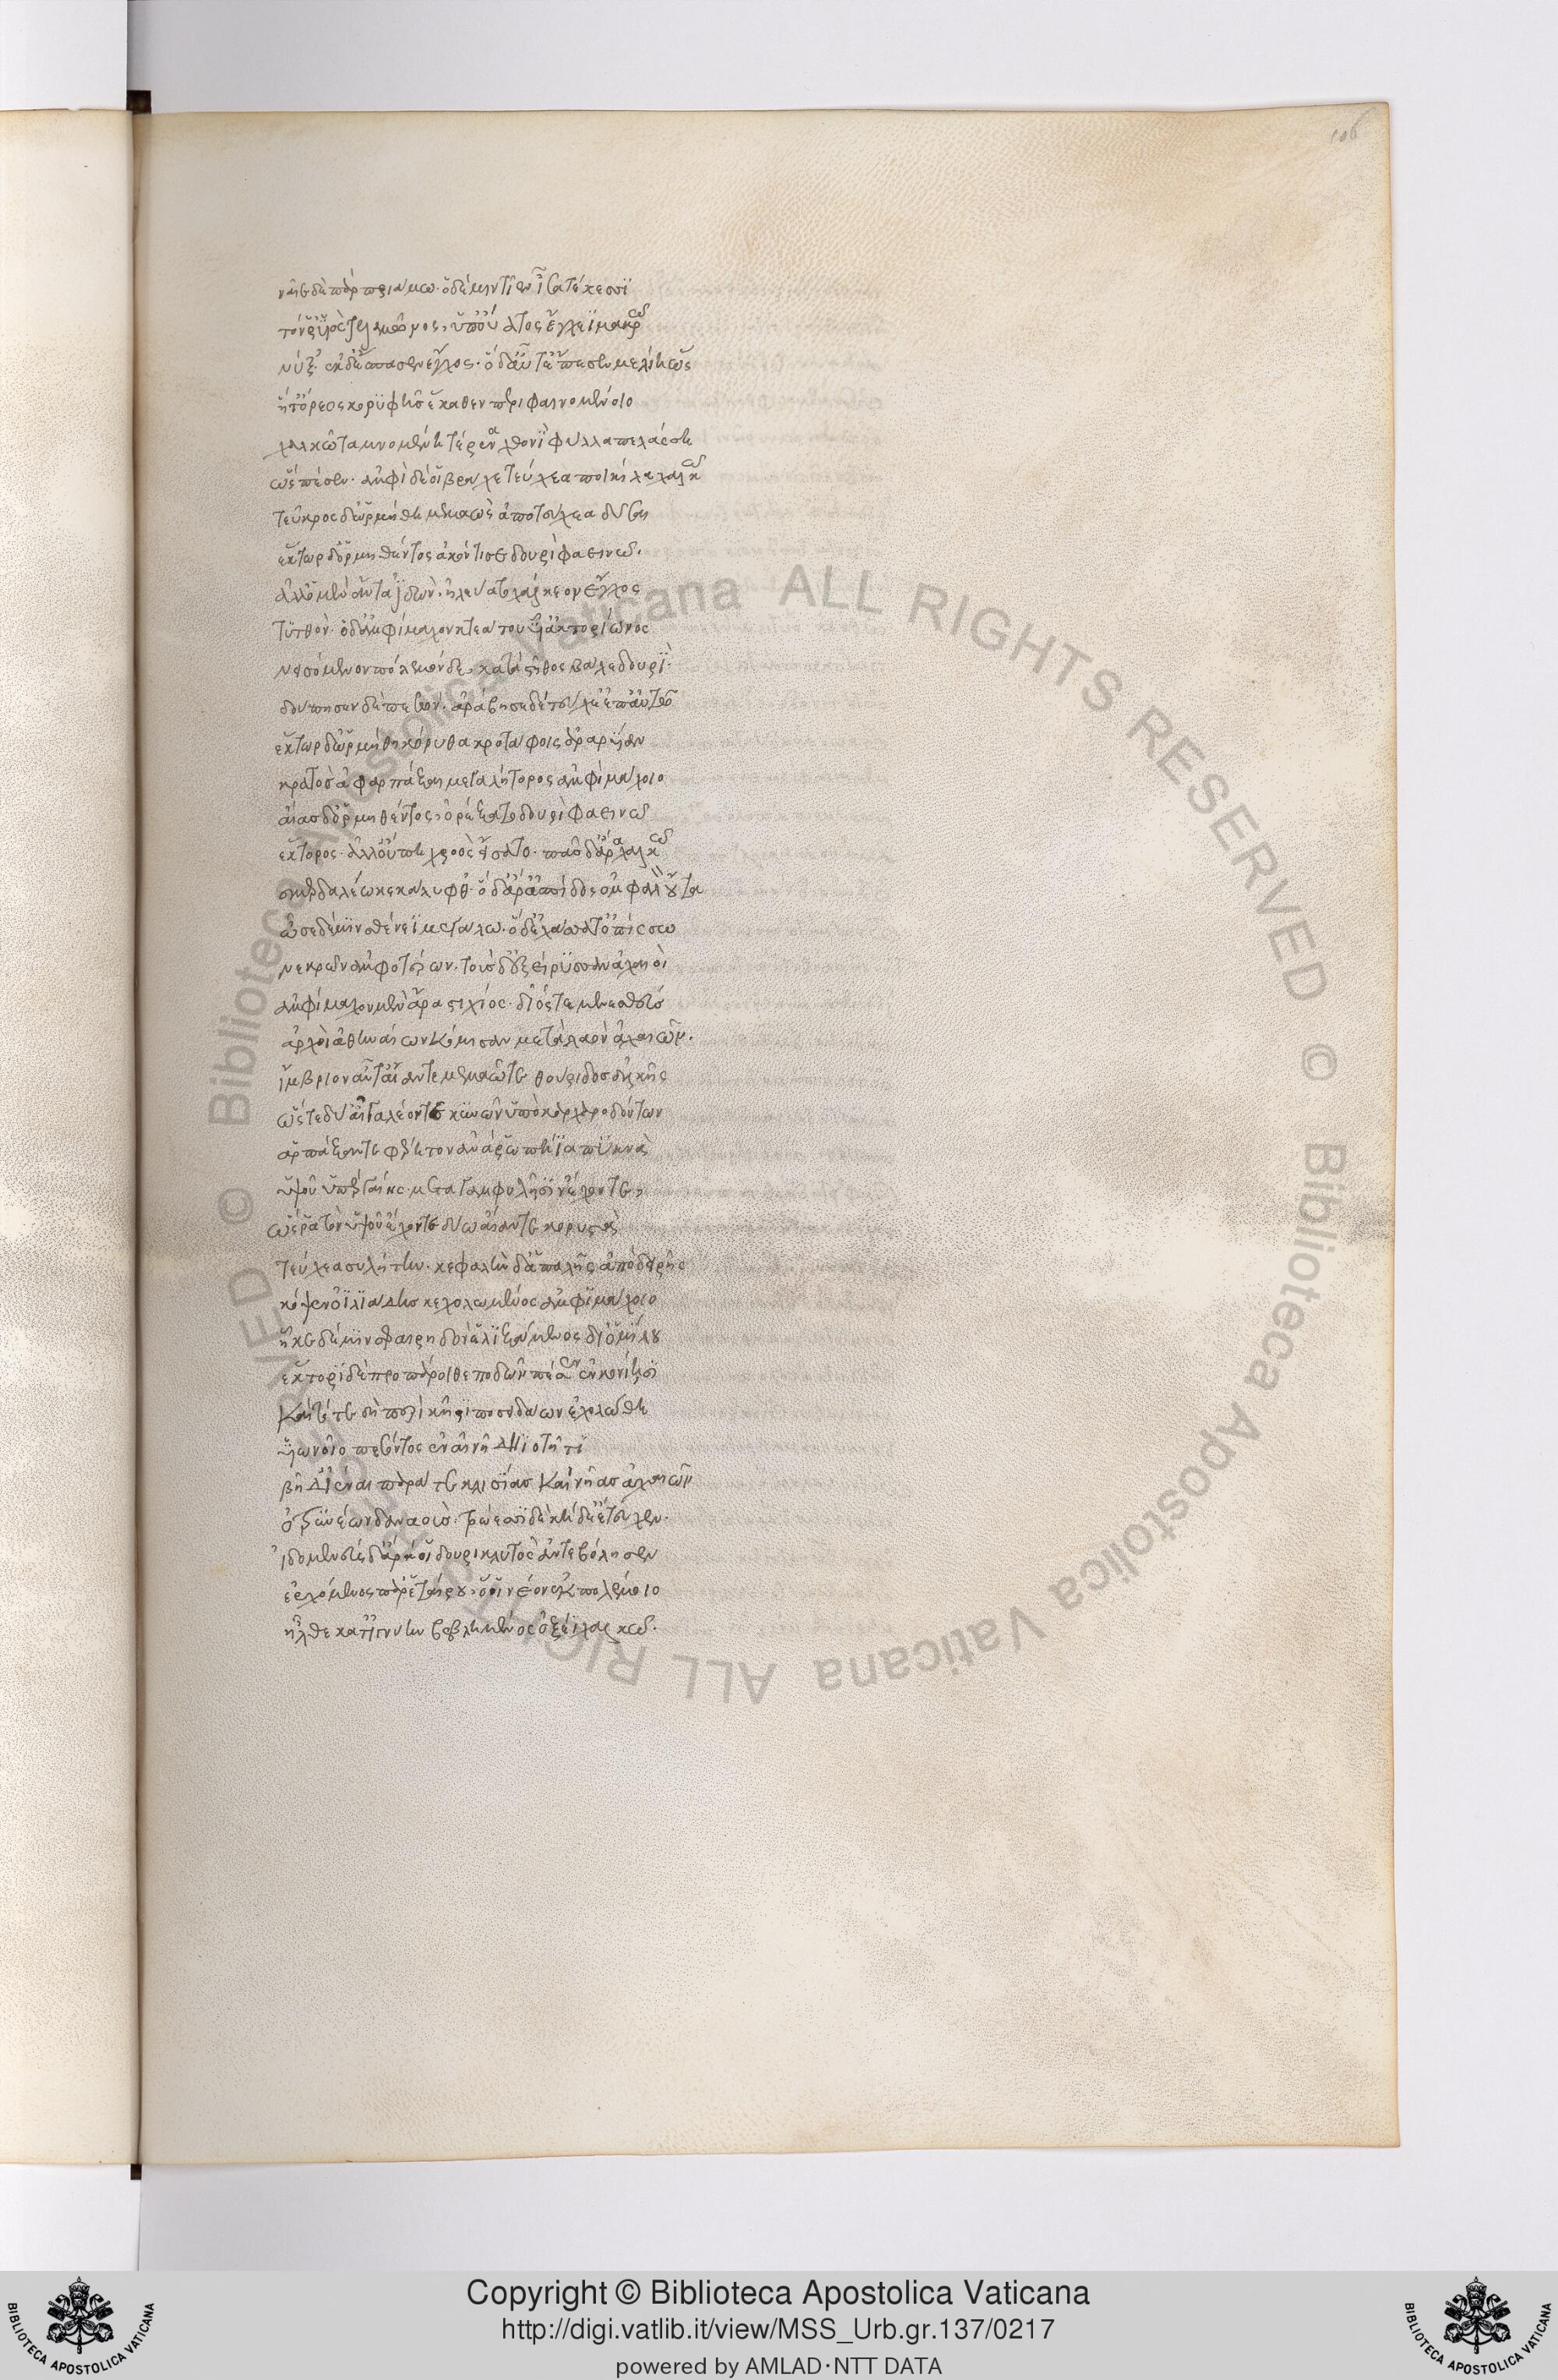 ναῖε δὲ πὰρ πριάμω· ὃ δέ μιν τῖεν ἶσα τέκεσσϊ
τόν ῥ' ὑϊὸς τελαμῶνος, ὑπ' οὔατος ἔγχεϊ μακρῶ
νύξ'. ἐκ δ' ἔσπασεν ἔγχος· ὃ δ' αὖτ' ἔπεσεν μελίη ὣς
ἥ τ' ὄρεος κορϋφῆς ἕκαθεν περιφαινομένοιο
χαλκῶ ταμνομένη τέρενα χθονῒ φύλλα πελάσση
ὣς πέσεν· ἀμφὶ δέ οἱ βράχε τεύχεα ποικίλα χαλκῶ
τεῦκρος δ' ὡρμήθη μεμαὼς ἀπὸ τεύχεα δῦσαι
ἕκτωρ δ' ὁρμηθέντος ἀκόντισε δουρὶ φαεινῶ.
ἀλλ' ὁ μὲν ἄντα ἰδὼν. ἠλεύατο χάλκεον ἔγχος
τϋτθόν· ὁ δ' ἀμφίμαχον κτεάτου υἷ' ἀκτορίωνος
νισόμενον πόλεμόνδε, κατὰ στῆθος βάλε δουρῒ·
δούπησεν δὲ πεσὼν. ἀράβησε δὲ τεύχε' ἐπ' αὐτῶ
ἕκτωρ δ' ὡρμήθη κόρυθα κροτάφοις ἀραρυῖαν
κρατὸς ἀφαρπάξαι μεγαλήτορος ἀμφιμάχοιο
αἴας δ' ὁρμηθέντος, ὀρέξατο δουρὶ φαεινῶ
ἕκτορος· ἀλλ' οὔπη χροὸς εἴσατο· πᾶς δ' ἄρα χαλκῶ
σμερδαλέω κεκάλυφθ'· ὁ δ' ἄρ' ἀσπίδος ὀμφαλὸν οὖτα
ὦσε δέ μϊν σθένεϊ μεγάλω· ὁ δὲ χάσσατ' ὀπίσσω
νεκρῶν ἀμφοτέρων. τοὺς δ' ἐξείρϋσσαν ἀχαιοὶ
ἀμφίμαχον μὲν ἄρα στιχίος· δῖός τε μενεσθεὺς
ἀρχοὶ ἀθηναίων κόμισαν μετὰ λαὸν ἀχαιῶν.
ἴμβριον αὖτ' αἴαντε μεμαῶτε θούριδος ἀλκῆς
ὥς τε δύ' αἶγα λέοντε κϋνῶν ὑπὸ καρχαροδόντων
ἁρπάξαντε φέρητον ἀνὰ ῥωπήϊα πϋκνὰ
ὑψοῦ ὑπὲρ γαίης μετὰ γαμφηλῇσϊν ἔχοντε,
ὥς ῥα τὸν ὑψοῦ ἔχοντε δύω αἴαντε κορυστὰ
τεύχεα συλήτην. κεφαλὴν δ' ἁπαλῆς ἀπὸ δειρῆς
κόψεν ὀϊλϊάδης κεχολωμένος ἀμφϊμάχοιο
ἧκε δέ μϊν σφαιρηδὸν ἑλϊξάμενος δι' ὁμίλου
ἕκτορϊ δὲ προπάροιθε ποδῶν πέσεν ἐν κονίησϊ
καὶ τότε δὴ περὶ κῆρϊ ποσειδάων ἐχολώθη
υἱωνοῖο πεσόντος ἐν αἰνῇ δηϊοτῆτϊ
βῆ δ' ἰέναι παρά τε κλισίας καὶ νῆας ἀχαιῶν
ὀτρϋνέων δαναούς· τρώεσσϊ δὲ κήδε' ἔτευχεν.
ἰδομενεὺς δ' ἄρα οἱ δουρικλυτὸς ἀντεβόλησεν
ἐρχόμενος παρ' ἑταίρου, ὅς οἱ νέον ἐκ πολέμοιο
ἦλθε κατ' ἰγνύην βεβλημένος ὀξέϊ χαλκῶ.
106
Copyright © Biblioteca Apostolica Vaticana
http://digi.vatlib.it/view/MSS_Urb.gr.137/0217
powered by AMLAD·NTT DATA